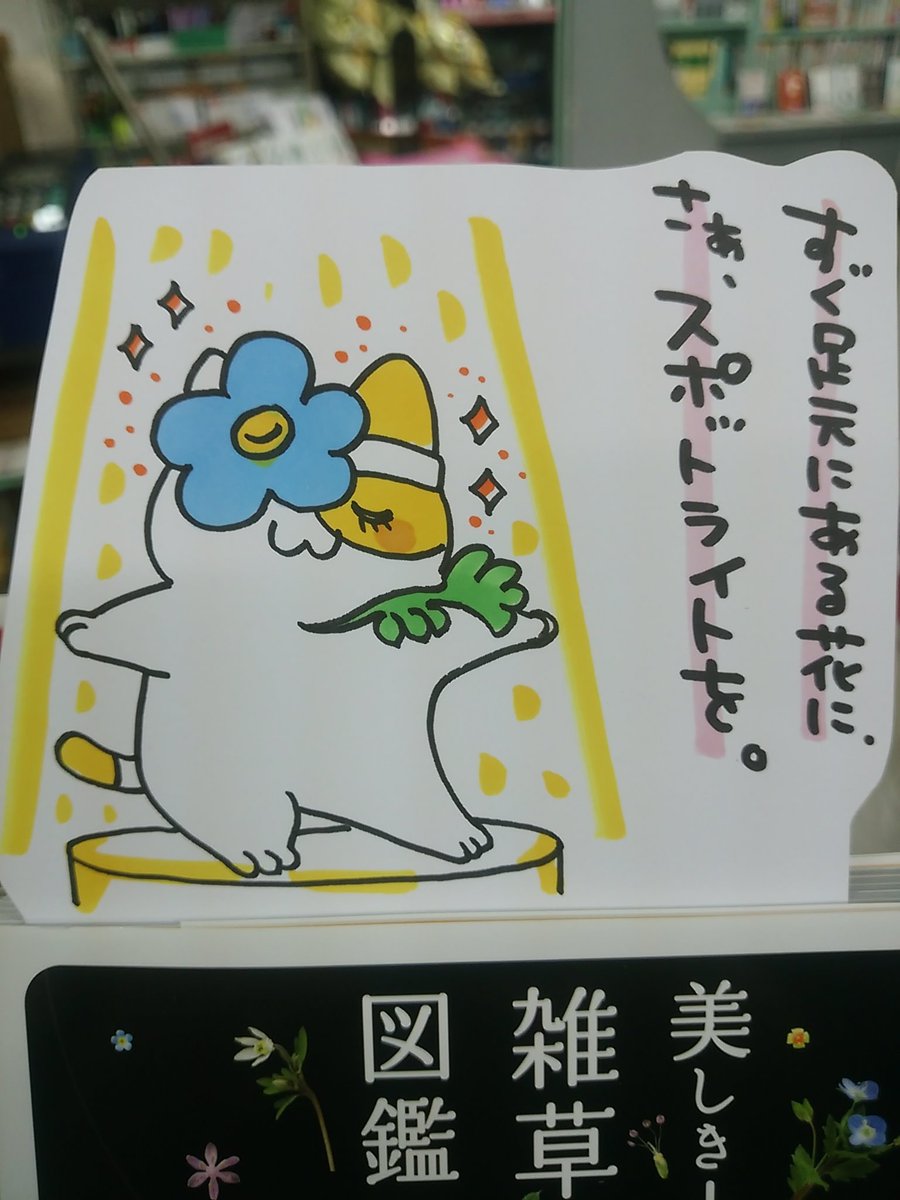 すぐ足元にある花に、
さぁ、スポットライトを。
美しき
雑草
図鑑